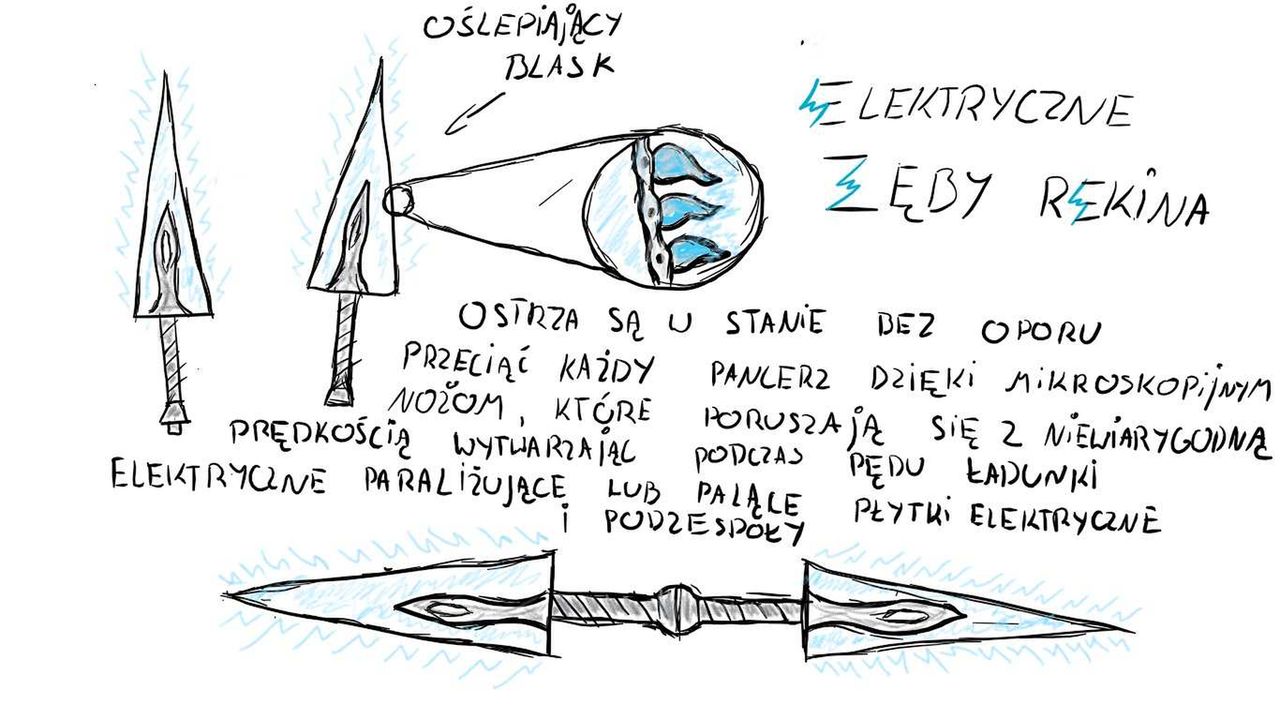 OŚLEPIAJĄCY
BLASK
ELEKTRYCZNE
ZĘBY REKINA
OSTRZA SĄ W STANIE BEZ OPORU
PRZECIĄĆ KAŻDY PANCERZ DZIĘKI MIKROSKOPIJNYM
NOŻOM, KTÓRE PORUSZAJĄ SIĘ Z NIEWIARYGODNĄ
PRĘDKOŚCIĄ WYTWARZAJĄC PODCZAS PĘDU ŁADUNKI
ELEKTRYCZNE PARALIŻUJĄCE LUB PALĄCE PŁYTKI ELEKTRYCZNE
I PODZESPOŁY